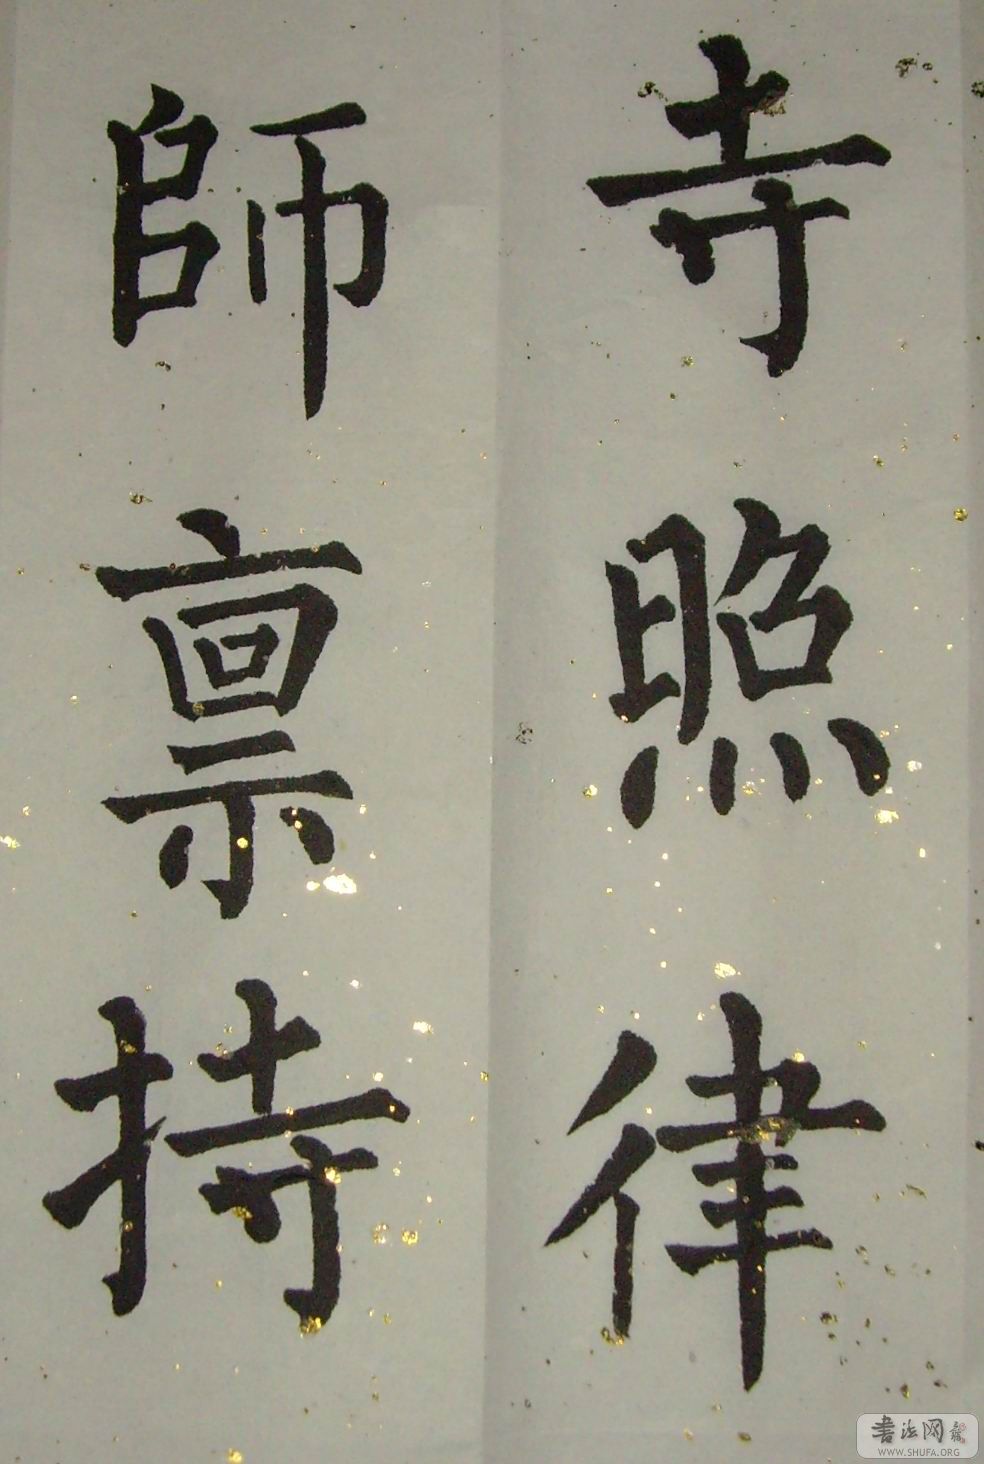 寺照律
師禀持
書法网
WWW.SHUFA.ORG